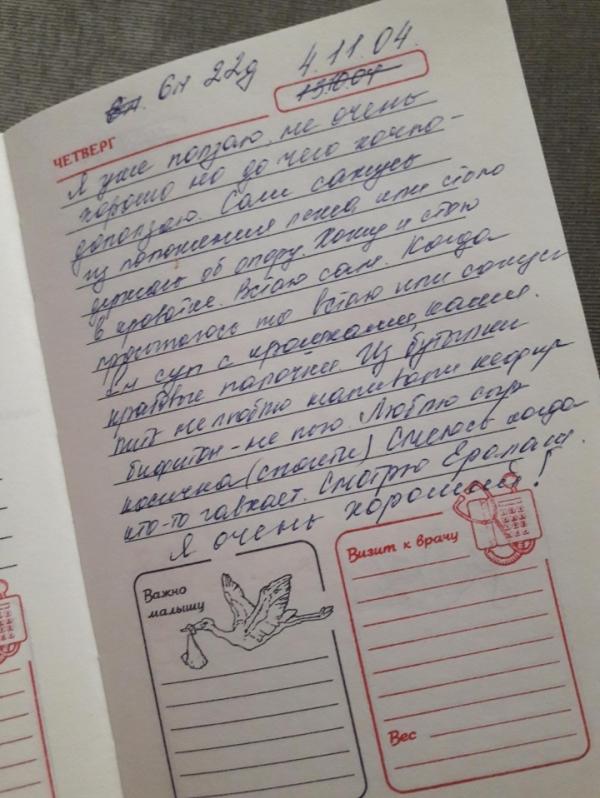 6м 22д 4.11.04.
13.10.04
ЧЕТВЕРГ
Я уже ползаю, не очень
хорошо но до чего хочпо-
доползаю. Сам сажусь
из положения лежа, или стою
держась об опору. Хожу и стою
в кроватке. Встаю сам. Когда
просыпаюсь то встаю или сажусь
Ем суп с крошками, каши.
крабовые палочки. Из бутылки
пить не люблю напитки кефир
бифитон - не пью. Люблю сыр
косичка (спагети) Смеюсь когда
кто-то гавкает. Смотрю Ералаш.
Я очень хороший!
Важно
малышу
Визит к врачу
Вес